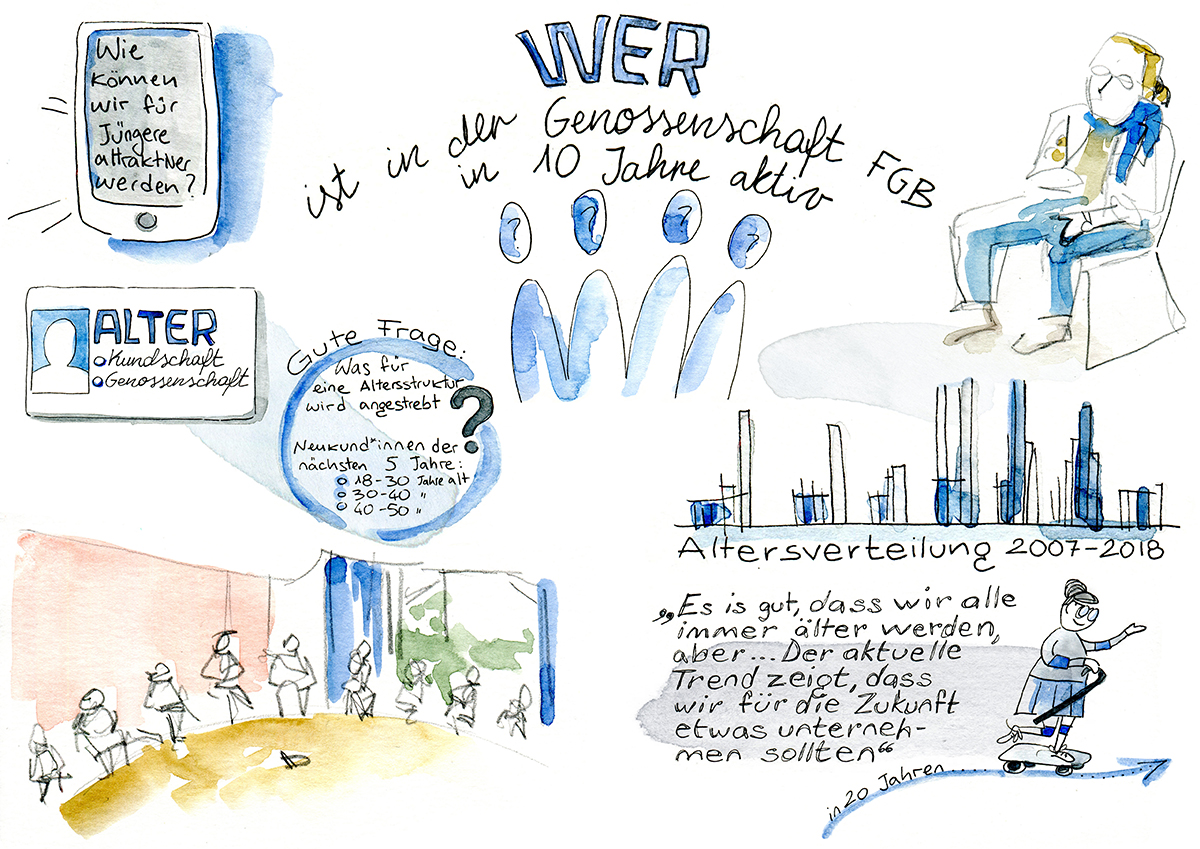 WER
ist in der Genossenschaft FGB
in 10 Jahre aktiv
Wie
können
wir für
Jüngere
attraktiver
werden?
ALTER
Kundschaft
Genossenschaft
Gute Frage:
Was für
eine Altersstruktur
wird angestrebt
?
Neukund*innen der
nächsten 5 Jahre:
18-30 Jahre alt
30-40 "
40-50 "
? ? ? ?
Altersverteilung 2007-2018
„Es is gut, dass wir alle
immer älter werden,
aber... Der aktuelle
Trend zeigt, dass
wir für die Zukunft
etwas unterneh-
men sollten“
in 20 Jahren